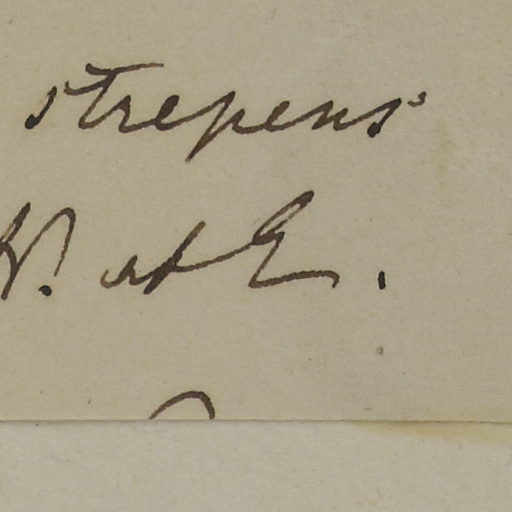 strepens
W. et E.